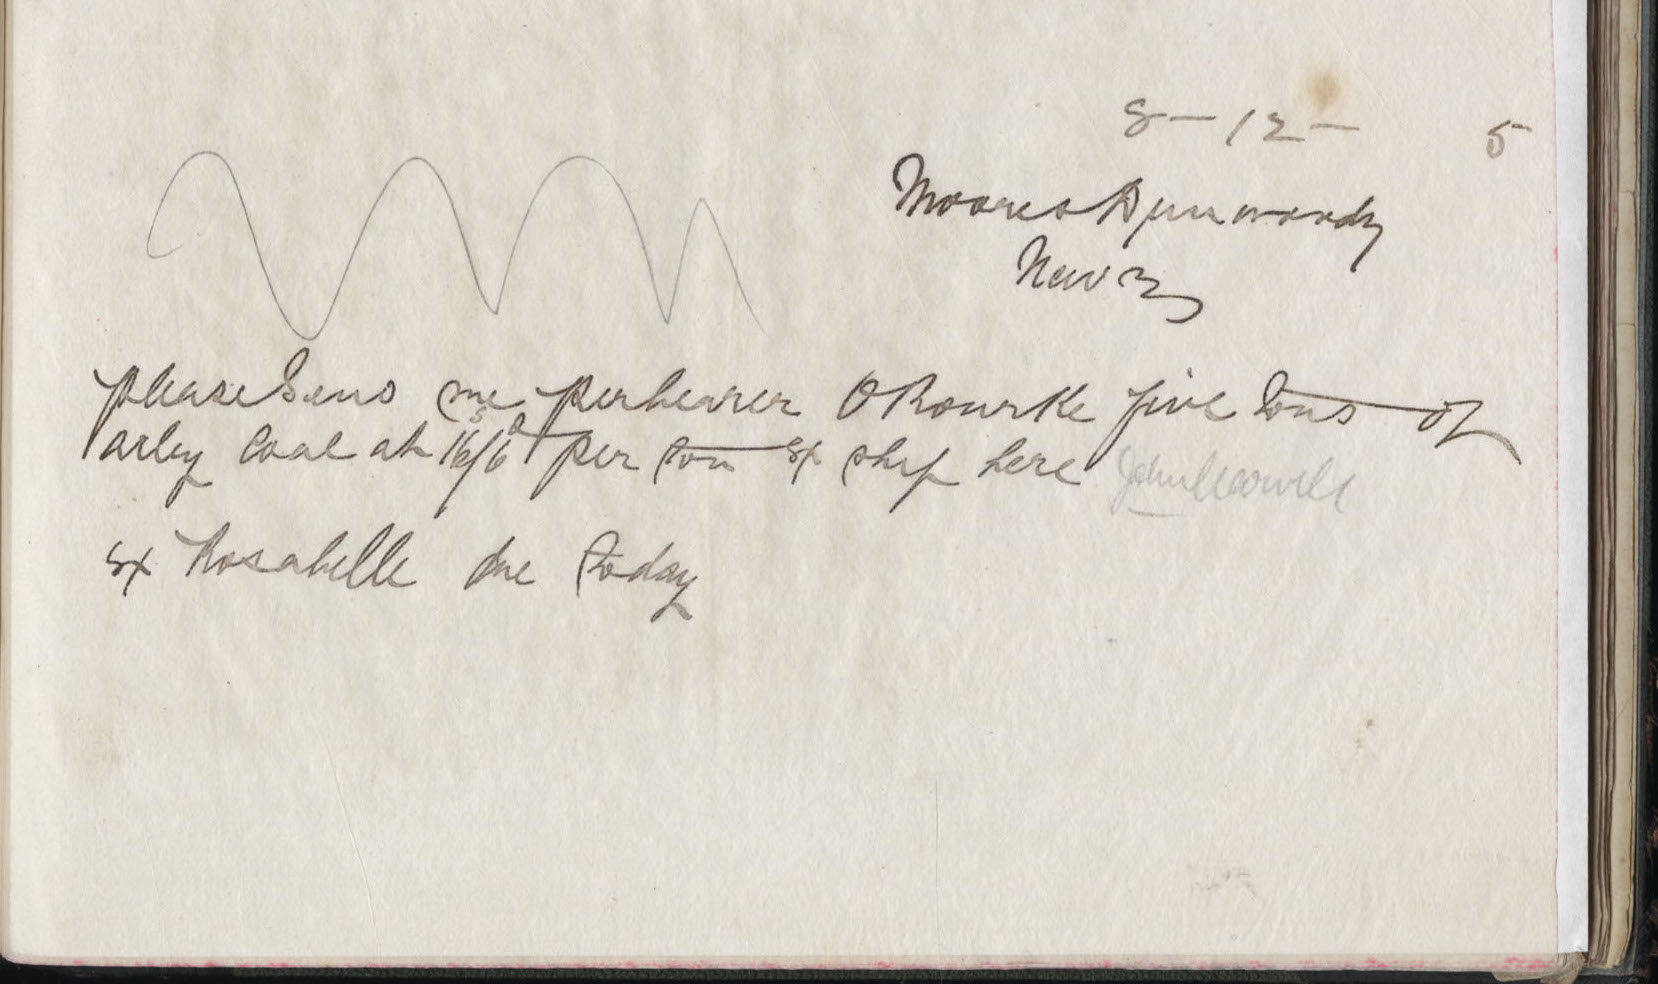 8-12- 5
Moores Dunwoody
Newry
Please Send me per bearer O Rourke five tons of
arley Coal at 16s/6d per ton ex ship here John
ex Rosabelle due today